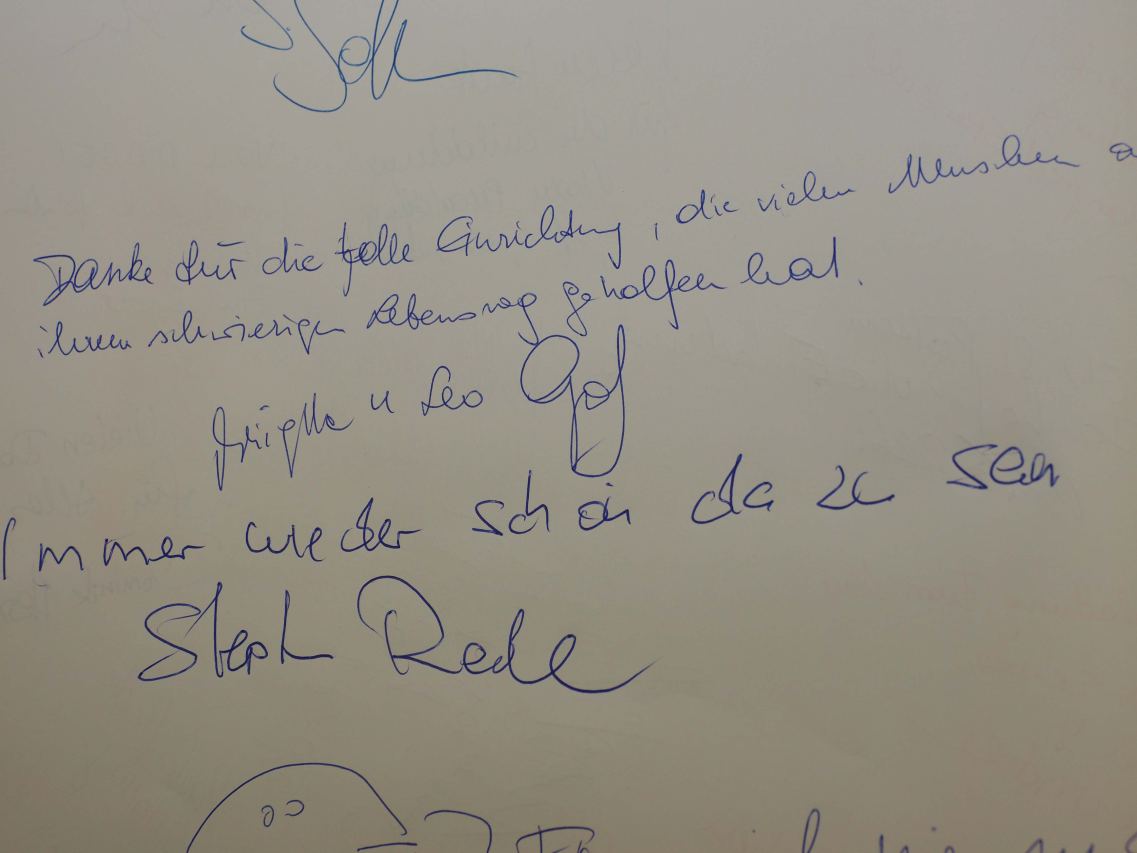 Danke für die tolle Einrichtung, die vielen Menschen
ihrem schwierigen Lebensweg geholfen hat.
u Leo
Immer wieder schön da zu sein
Steph